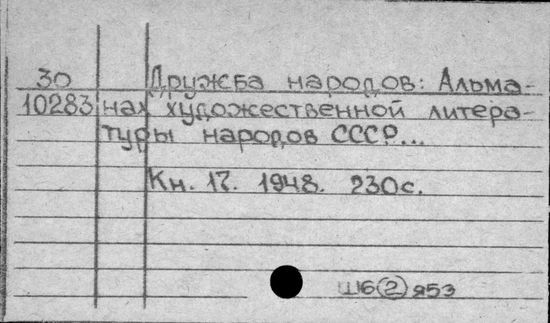 30 Дружба народов: Альма-
10283 нах художественной литера-
туры народов СССР...
Кн. 17. 1948. 230с.
Ш6(2)я53